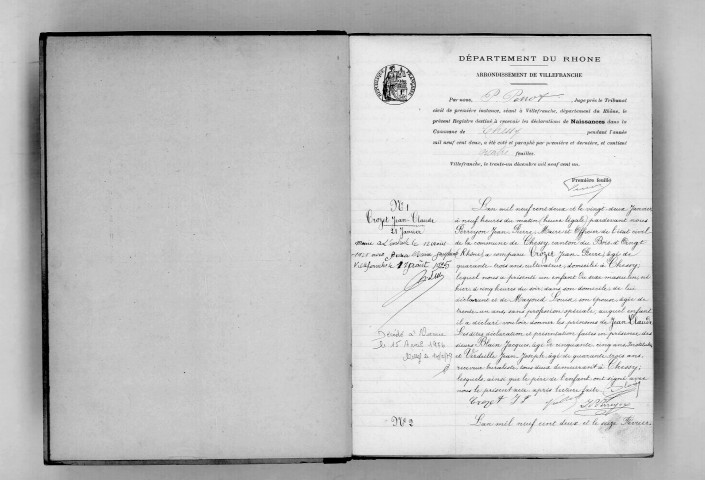 DÉPARTEMENT DU RHONE
ARRONDISSEMENT DE VILLEFRANCHE
RÉPUBLIQUE FRANÇAISE
Par nous, P. Juge près le Tribunal
civil de première instance, séant à Villefranche, département du Rhône, le
présent Registre destiné à recevoir les déclarations de Naissances dans la
Commune de Chessy pendant l'année
mil neuf cent deux, a été coté et paraphé par première et dernière, et contient
feuilles.
Villefranche, le trente-un décembre mil neuf cent un.
Première feuille
N° 1
Crozet Jean-Claude
21 Janvier
Marié à le 12 août
1925 avec
Villefranche le 1925
Décédé à
le 15 Avril 1976
L'an mil neuf cent deux et le vingt-deux Janvier
à neuf heures du matin (heure légale) pardevant nous
Perroyon Jean Pierre, Maire et Officier de l'état civil
de la commune de Chessy canton du Bois d'Oingt
(Rhône) a comparu Crozet Jean Pierre, âgé de
quarante trois ans cultivateur, domicilié à Chessy,
lequel nous a présenté un enfant du sexe masculin, né
hier à cinq heures du soir, dans son domicile, de lui
déclarant et de Mayoud Louise, son épouse, âgée de
trente un ans sans profession spéciale, auquel enfant
il a déclaré vouloir donner les prénoms de Jean Claude
Lesdites déclaration et présentation faites en présence des
sieurs Blain Jacques, âgé de cinquante cinq ans, Instituteur
et Verdellle Jean Joseph âgé de quarante trois ans,
receveur buraliste, tous deux demeurant à Chessy;
lesquels, ainsi que le père de l'enfant ont signé avec
nous le présent acte après lecture faite.
Crozet JP
N° 2
L'an mil neuf cent deux et le Février